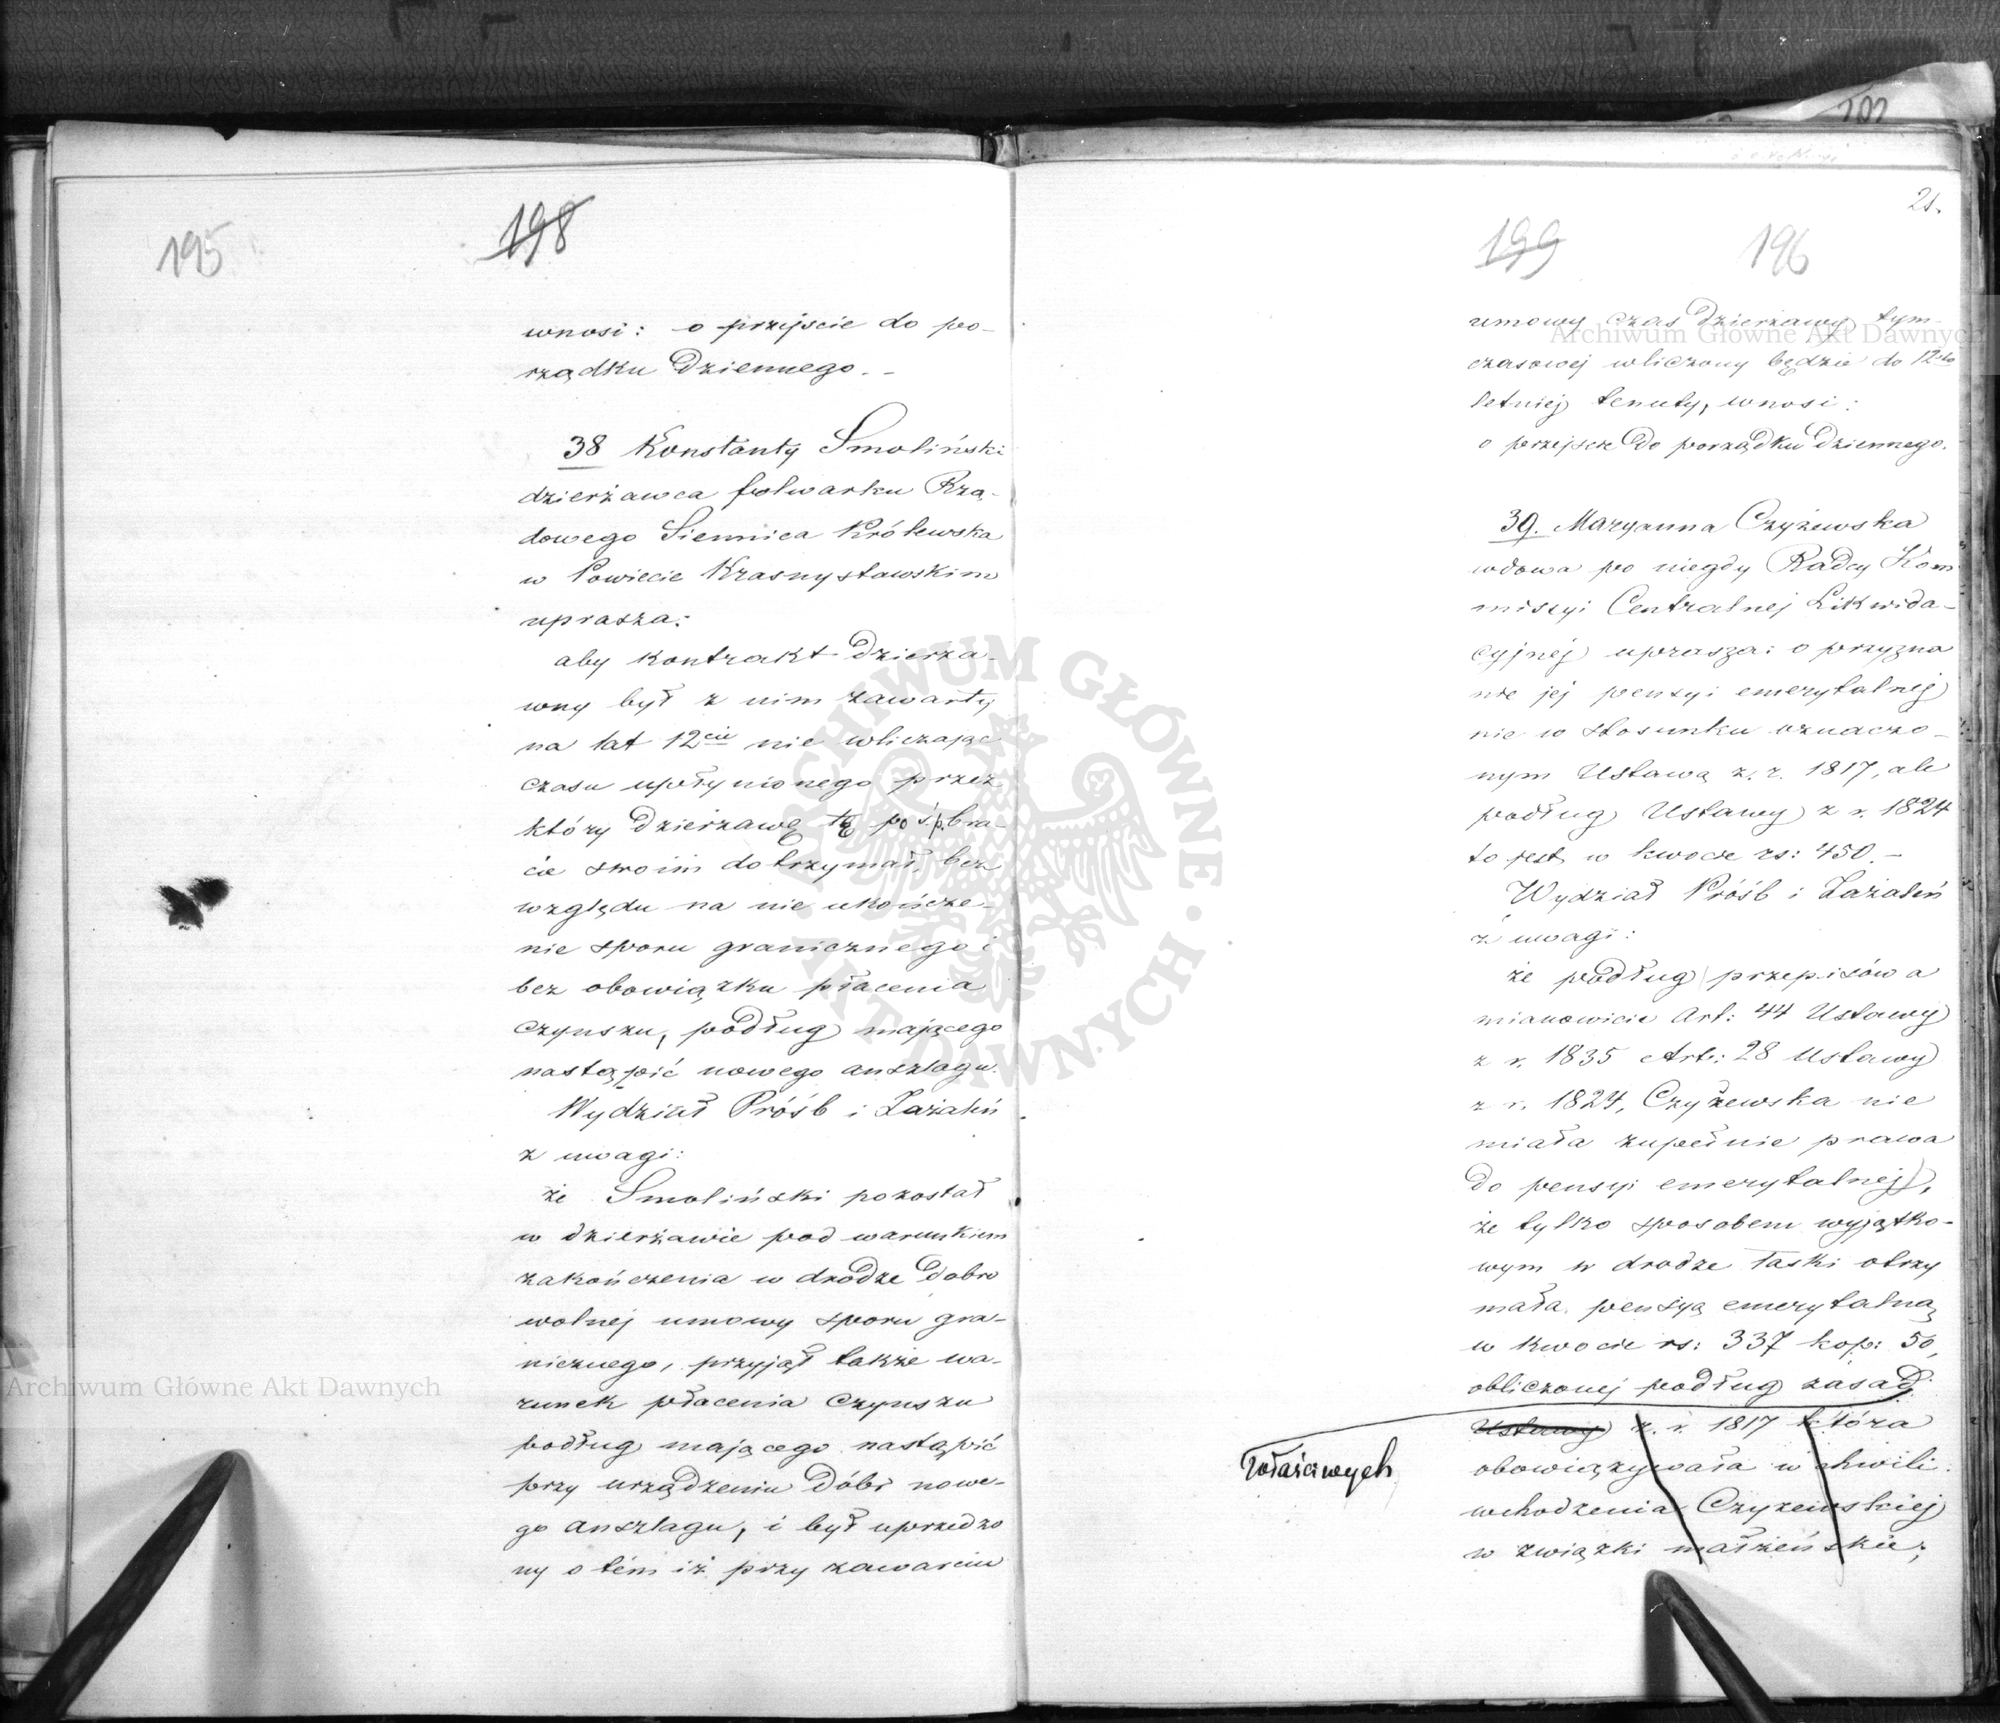 195
198
wnosi: o przejście do po-
rządku Dziennego. -
38 Konstanty Smoliński
dzierżawca folwarku Rzą-
dowego Siennica Królewska
w Powiecie Krasnystawskim
uprasza:
aby kontrakt dzierża-
wny był z nim zawarty
na lat 12cie nie wliczając
czasu upłynionego przez
który dzierżawę tę po ś.p. bra-
cie swoim dotrzymał, bez
względu na nie ukończe-
nie sporu granicznego i
bez obowiązku płacenia
czynszu, podług mającego
nastąpić nowego anszlagu.
Wydział Próśb i Zażaleń
z uwagi:
że Smoliński pozostał
w dzierżawie pod warunkiem
zakończenia w drodze dobro
wolnej umowy sporu gra-
nicznego, przyjął także wa-
runek płacenia czynszu
podług mającego nastąpić
przy urządzeniu dóbr nowe-
go anszlagu, i był uprzedzo
ny o tém iż przy zawarciu
202
21.
199
196
umowy czas dzierżawy tym-
czasowej wliczony będzie do 12sto
letniej tenuty, wnosi:
o przejście do porządku dziennego.
39. Maryanna Czyżewska
wdowa po niegdy Radcy Kom
missyi Centralnej Likwida-
cyjnej uprasza: o przyzna
nie jej pensyi emerytalnej
nie w stosunku oznaczo-
nym Ustawą z r. 1817, ale
podług Ustawy z r. 1824
to jest w kwocie rs: 450. -
Wydział Próśb i Zażaleń
z uwagi:
że podług przepisów a
mianowicie Art: 44 Ustawy
z r. 1835 Art: 28 Ustawy
z r. 1824, Czyżewska nie
miała zupełnie prawa
do pensyi emerytalnej,
że tylko sposobem wyjątko-
wym w drodze łaski otrzy
mała pensyą emerytalną
w kwocie rs: 337 kop: 50,
obliczonej podług zasad
właściwych
Ustawy z r. 1817 która
obowiązywała w chwili
wchodzenia Czyżewskiej
w związki małżeńskie;
Archiwum Główne Akt Dawnych
Archiwum Główne Akt Dawnych
ARCHIWUM GŁÓWNE AKT DAWNYCH